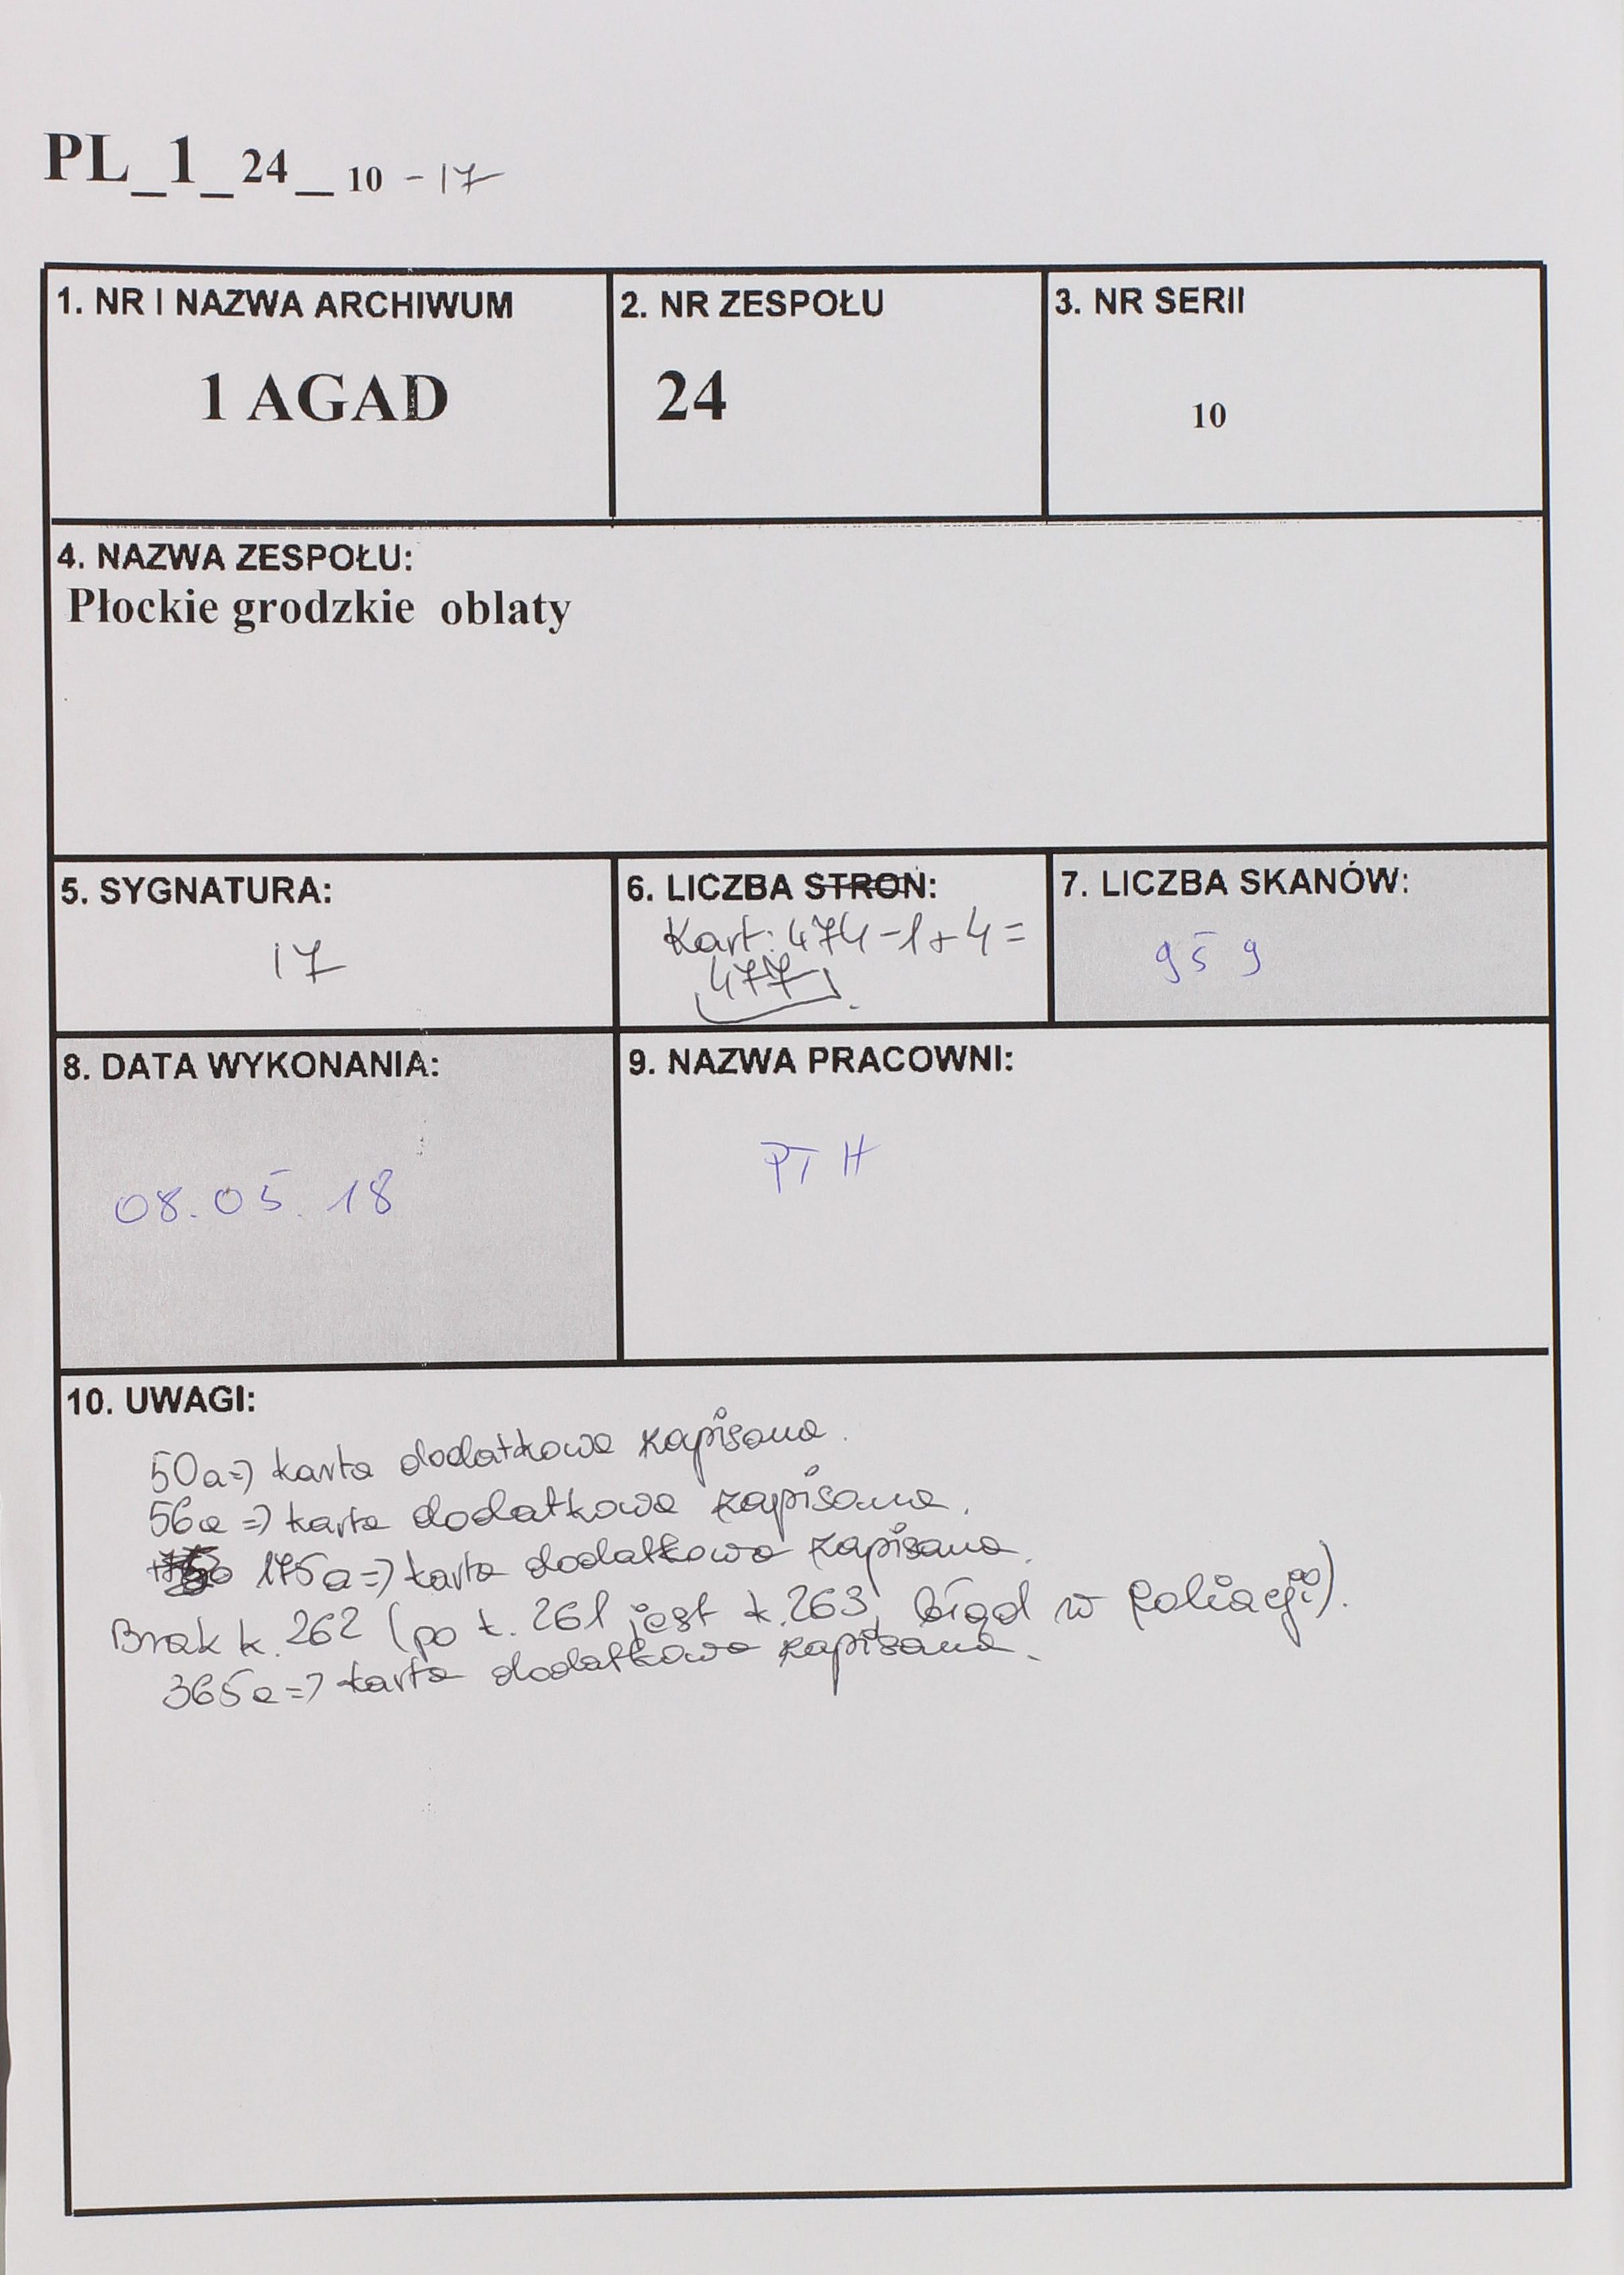 PL_1_24_10 - 17
1. NR I NAZWA ARCHIWUM
1 AGAD
2. NR ZESPOŁU
24
3. NR SERII
10
4. NAZWA ZESPOŁU:
Płockie grodzkie oblaty
5. SYGNATURA:
17
6. LICZBA STRON:
Kart: 474-1+4=
477
7. LICZBA SKANÓW:
959
8. DATA WYKONANIA:
08.05.18
9. NAZWA PRACOWNI:
PTH
10. UWAGI:
50a=) karta dodatkowa zapisana.
56a=) karta dodatkowa zapisana.
175a=) karta dodatkowa zapisana.
Brak k. 262 (po k. 261 jest k. 263, błąd w foliacji).
365a=) karta dodatkowa zapisana.